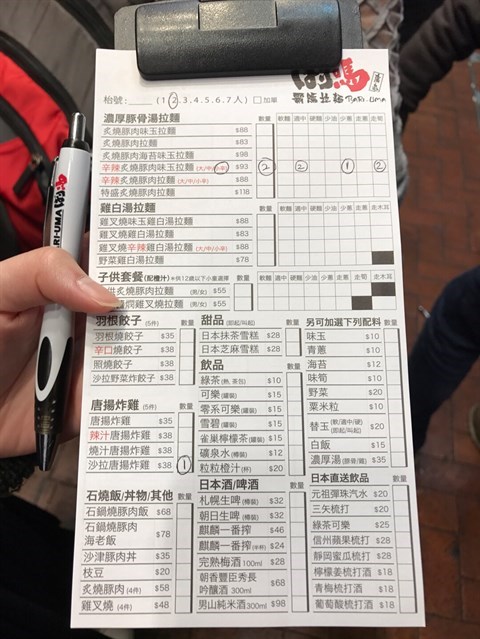 ばり馬
覇瑪拉麵 BARI-UMA
枱號:____ (1.2.3.4.5.6.7人) □加單
濃厚豚骨湯拉麵 數量 軟麵 適中 硬麵 少油 少蔥 走蔥 走筍
炙燒豚肉味玉拉麵 $88
炙燒豚肉拉麵 $83
炙燒豚肉海苔味玉拉麵 $98
辛辣炙燒豚肉味玉拉麵 (大/中/小辛) $93 2 2 1 2
辛辣炙燒豚肉拉麵 (大/中/小辛) $88
特盛炙燒豚肉拉麵 $118
雞白湯拉麵 數量 軟麵 適中 硬麵 少油 少蔥 走蔥 走木耳
雞叉燒味玉雞白湯拉麵 $88
雞叉燒雞白湯拉麵 $83
雞叉燒辛辣雞白湯拉麵 (大/中/小辛) $88
野菜雞白湯拉麵 $78
子供套餐 (配橙汁) ※供12歲以下小童選擇 數量 軟麵 適中 硬麵 少油 少蔥 走蔥 走筍 走木耳
供炙燒豚肉拉麵 (男/女) $55
燜雞叉燒拉麵 (男/女) $55
羽根餃子 (5件) 數量
羽根燒餃子 $35
辛口燒餃子 $38
照燒餃子 $38
沙拉野菜炸餃子 $38
唐揚炸雞 (5件) 數量
唐揚炸雞 $35
辣汁唐揚炸雞 $38
燒汁唐揚炸雞 $38
沙拉唐揚炸雞 $38 1
石燒飯/丼物/其他 數量
石鍋燒豚肉飯 $68
石鍋燒豚肉
海老飯 $78
沙津豚肉丼 $35
枝豆 $20
炙燒豚肉 (4件) $58
雞叉燒 (4件) $48
甜品 (即起/叫起) 數量
日本抹茶雪糕 $28
日本芝麻雪糕 $28
飲品 數量
綠茶 (熱, 茶包) $10
可樂 (罐裝) $15
零系可樂 (罐裝) $15
雪碧 (罐裝) $15
雀巢檸檬茶 (罐裝) $15
礦泉水 (樽裝) $12
粒粒橙汁 (杯) $20
日本酒/啤酒 數量
札幌生啤 (樽裝) $32
朝日生啤 (樽裝) $32
麒麟一番搾 $46
麒麟一番搾 (半杯) $24
完熟梅酒 100ml $28
朝香豐臣秀長
吟釀酒 300ml $68
男山純米酒 300ml $98
另可加選下列配料 數量
味玉 $10
青蔥 $10
海苔 $12
味筍 $10
野菜 $20
粟米粒 $10
替玉 (軟/適中/硬) (即起/叫起) $20
白飯 $15
濃厚湯 (豚骨/雞) $35
日本直送飲品 數量
元祖彈珠汽水 $20
三矢梳打 $20
綠茶可樂 $25
信州蘋果梳打 $28
靜岡蜜瓜梳打 $28
檸檬姜梳打酒 $18
青梅梳打酒 $18
葡萄酸梳打酒 $18
BARI-UMA ばり馬